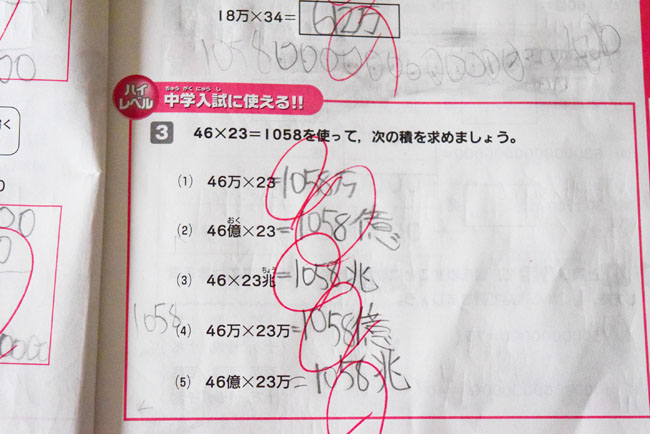 18万×34=612万
ハイレベル 中学入試に使える!!
3 46×23=1058を使って,次の積を求めましょう。
(1) 46万×23=1058万
(2) 46億×23=1058億
(3) 46×23兆=1058兆
1058
(4) 46万×23万=1058億
(5) 46億×23万=1058兆